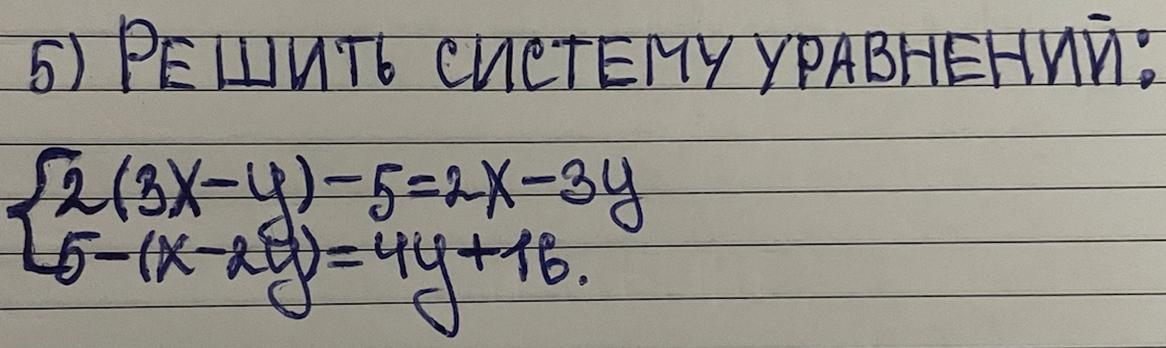 5) РЕШИТЬ СИСТЕМУ УРАВНЕНИЙ:
{2(3x-y)-5=2x-3y
5-(x-2y)=4y+16.